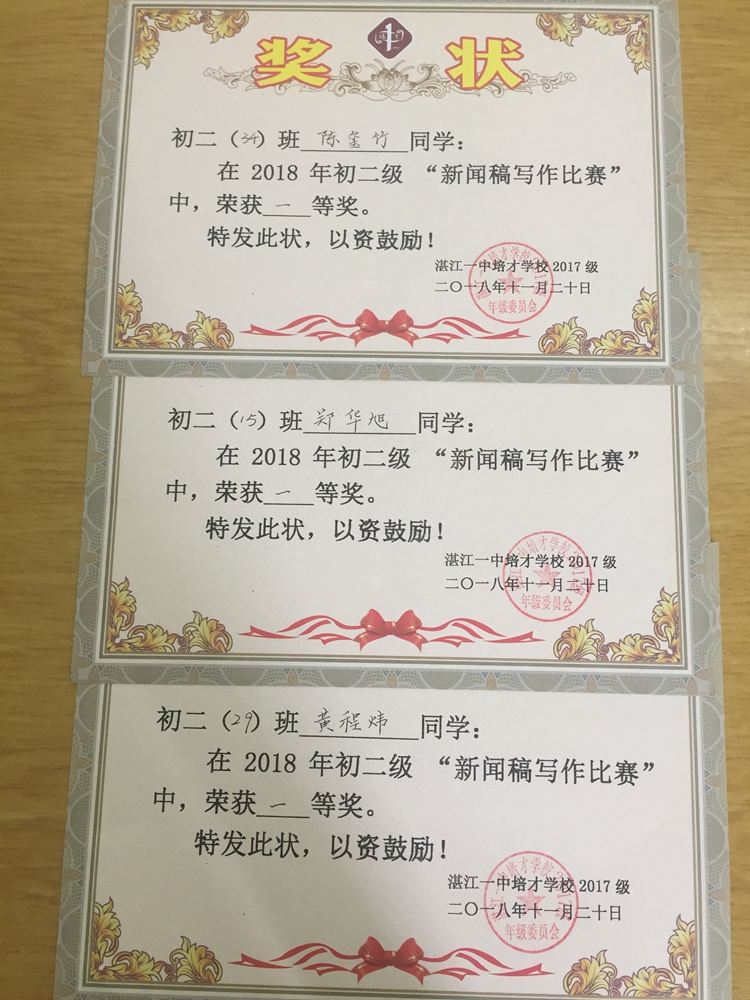 奖 状
初二（34）班 陈玺竹 同学：
在 2018 年初二级 “新闻稿写作比赛”
中，荣获 一 等奖。
特发此状，以资鼓励！
湛江一中培才学校 2017 级
二〇一八年十一月二十日
年级委员会
初二（15）班 郑华旭 同学：
在 2018 年初二级 “新闻稿写作比赛”
中，荣获 一 等奖。
特发此状，以资鼓励！
湛江一中培才学校 2017 级
二〇一八年十一月二十日
年级委员会
初二（29）班 黄程炜 同学：
在 2018 年初二级 “新闻稿写作比赛”
中，荣获 一 等奖。
特发此状，以资鼓励！
湛江一中培才学校 2017 级
二〇一八年十一月二十日
年级委员会